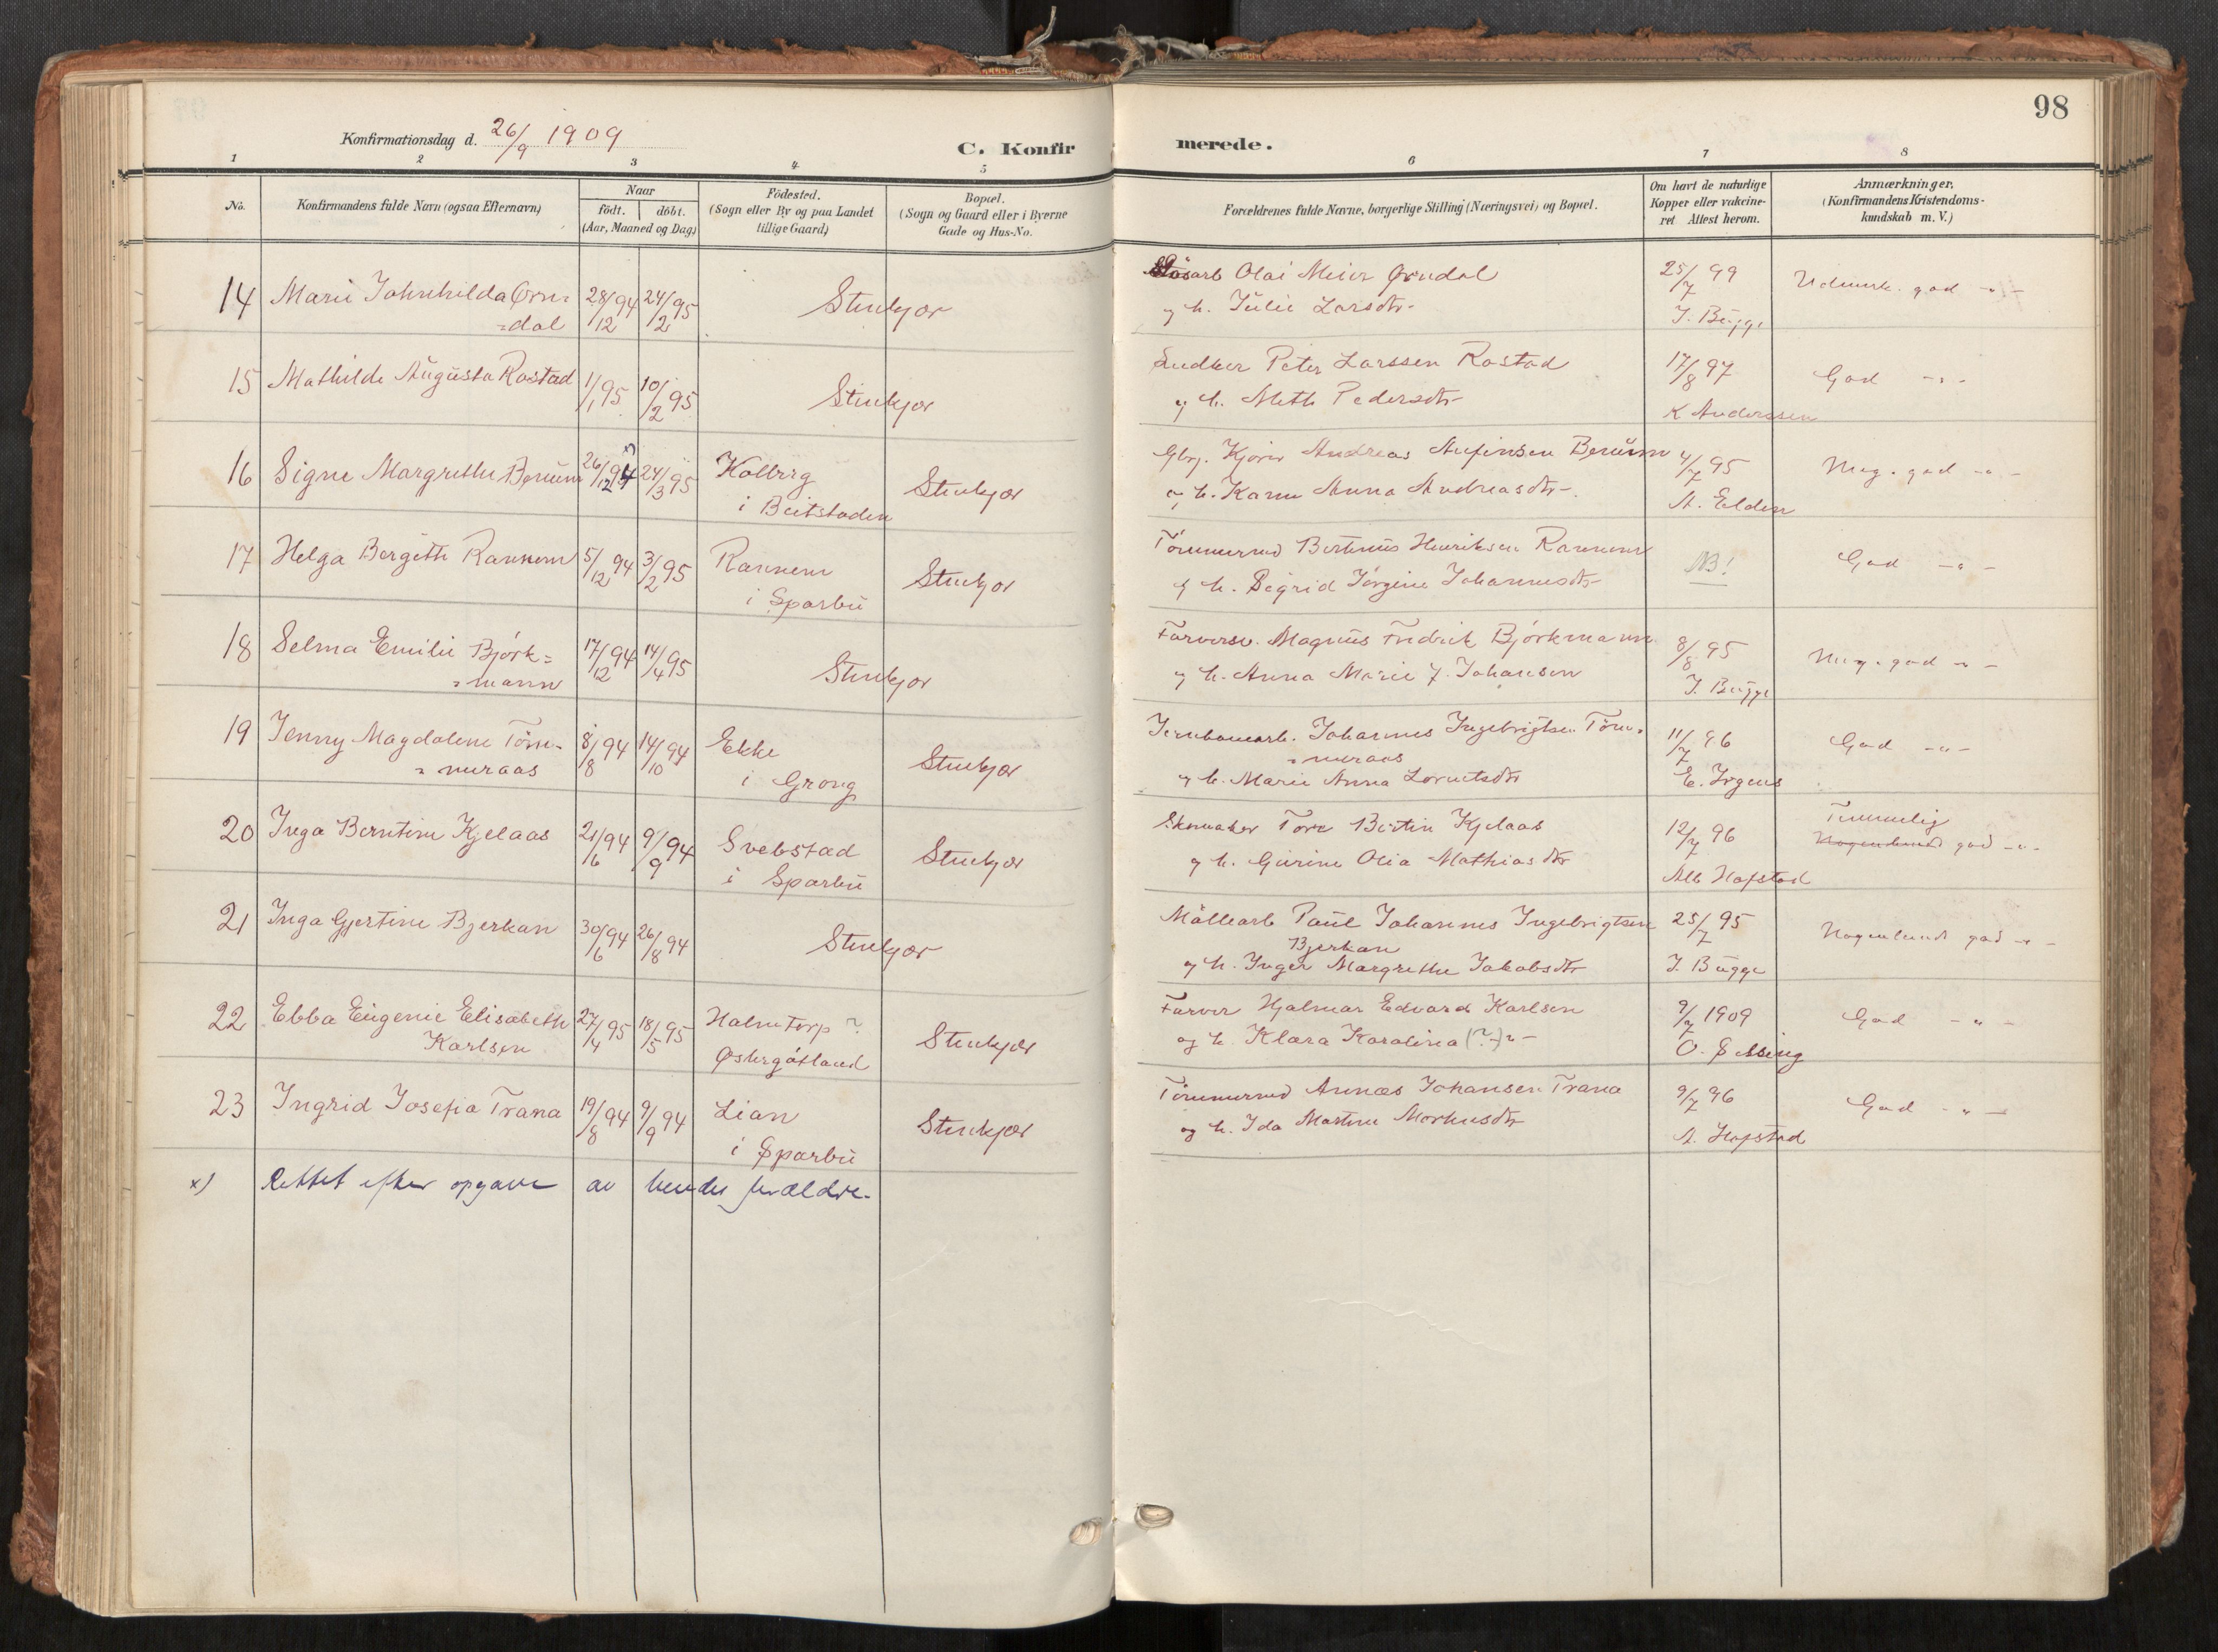 98
Konfirmationsdag d. 26/9 1909
C. Konfirmerede.
1 2 3 4 5 6 7 8
No.
Konfirmandens fulde Navn (ogsaa Efternavn)
Naar
födt. döbt.
(Aar, Maaned og Dag)
Födested.
(Sogn eller By og paa Landet
tillige Gaard)
Bopæl.
(Sogn og Gaard eller i Byerne
Gade og Hus-No.
Forældrenes fulde Navne, borgerlige Stilling (Næringsvei) og Bopæl.
Om havt de naturlige
Kopper eller vakcine-
ret Attest herom.
Anmærkninger.
(Konfirmandens Kristendoms-
kundskab m. V.)
14 Marie Johnhilda Ørn=
=dal
28/12 94 24/2 95 Stenkjær
Løsarb Olai Meier Ørndal
og h. Julie Larsdtr
25/7 99
J. Bugge
Udmerk. god -"-
15 Mathilde Augusta Rostad 1/1 95 10/2 95 Stenkjær
Peter Larssen Rostad
og h. Meth Pedersdtr
17/8 97
K Anderssen
God -"-
16 Signe Margrethe Benum 26/12 94 x) 24/3 95 Kolberg
i Beitstaden
Stenkjær
Gbrj. Andreas Benum
og h. Karen Anna Andreasdtr.
4/7 95
A. Elden
Meg. god -"-
17 Helga Bergitte Rannem 5/12 94 3/2 95 Rannem
i Sparbu
Stenkjær
Tömmermd Bertinus Henriksen Rannem
og h. Sigrid Jörgine Johannesdtr
NB!
God -"-
18 Selma Emilie Björk=
=mann
17/12 94 14/4 95 Stenkjær
Farversv. Magnus Fredrik Björkmann
og h. Anna Marie f. Johansen
8/8 95
J. Bugge
Meg. god -"-
19 Jenny Magdalene Töm=
=meraas
8/8 94 14/10 94 Ekke
i Grong
Stenkjær
Jernbanearb. Johannes Ingebrigtsen Töm=
=meraas
og h. Marie Anna Lorntsdtr
11/7 96
E. Irgens
God -"-
20 Inga Berntine Kjelaas 21/6 94 9/9 94 Svebstad
i Sparbu
Stenkjær
Skomaker Tore Bertin Kjelaas
og h. Gurine Olia Mathiasdtr
12/7 96
Alb Hofstad
Temmelig
Nogenlunde god -"-
21 Inga Gjertine Bjerkan 30/6 94 26/8 94 Stenkjær
Möllearb Paul Johannes Ingebrigtsen
Bjerkan
og h. Inger Margrethe Jakobsdtr
25/7 95
J. Bugge
Nogenlunde god -"-
22 Ebba Eugenie Elisabeth
Karlsen
27/4 95 18/5 95 Holmetorp ?
Østergötland
Stenkjær
Farver Hjalmar Edvard Karlsen
og h. Klara Karolina (?) -"-
9/7 1909
God -"-
23 Ingrid Josefia Trana 19/8 94 9/9 94 Lian
i Sparbu
Stenkjær
Tömmermd Annæs Johansen Trana
og h. Ida Martine Morkusdtr
9/7 96
A. Hofstad
God -"-
x) Rettet efter opgave av hendes forældre.